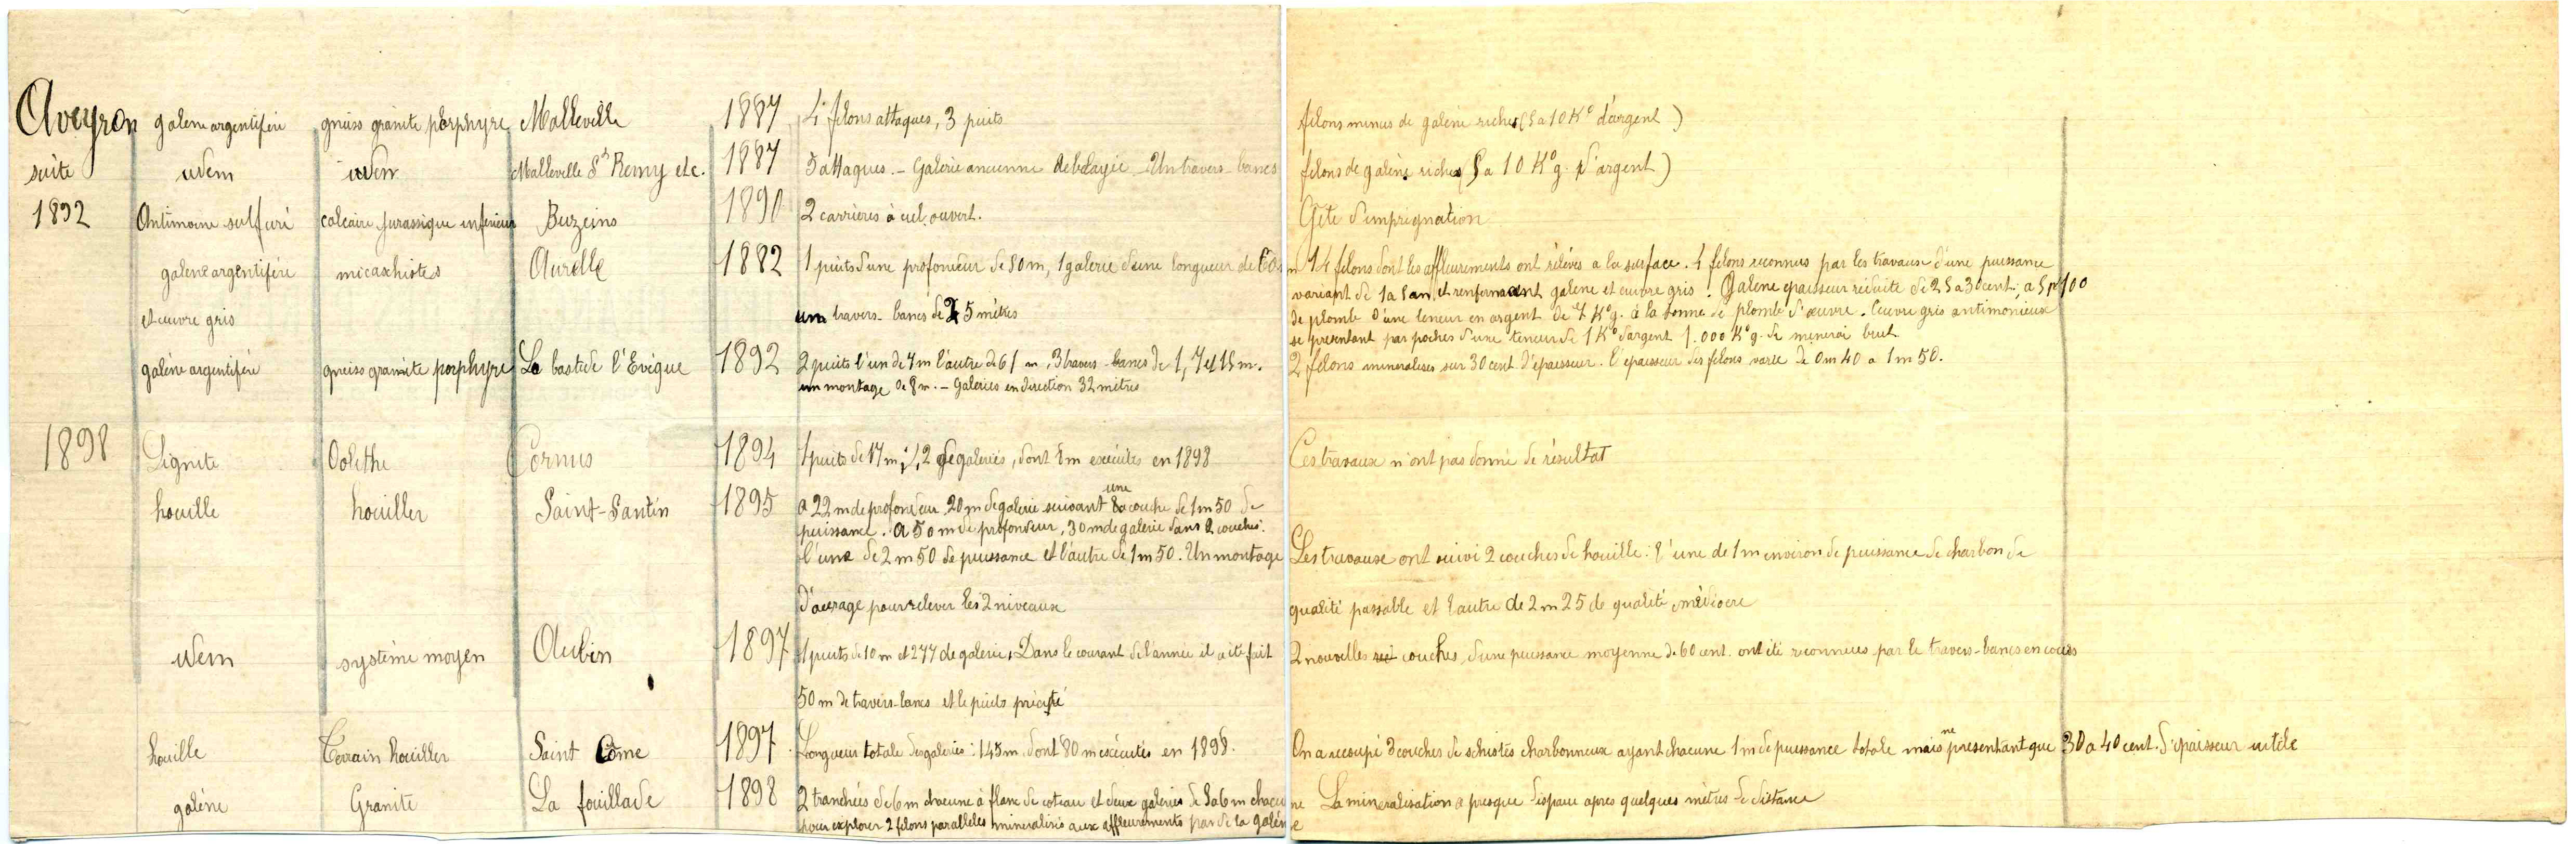 Aveyron galène argentifère gneiss granite porphyre Malleville 1887 4 filons attaqués, 3 puits filons minces de galène riches (5 a 10 K° d'argent)
suite idem idem Malleville St Remy etc. 1887 5 attaques. - Galerie ancienne deblayée - Un travers-bancs filons de galène riches (5 a 10 K°g. d'argent)
1892 Antimoine sulfuré calcaire jurassique inferieur Buzeins 1890 2 carrières à ciel ouvert. Gîte d'imprégnation
galène argentifère micaschistes Aurelle 1882 1 puits d'une profondeur de 80m, 1 galerie d'une longueur de m 14 filons dont les affleurements ont rélévés a la surface. 4 filons reconnus par les travaux d'une puissance
variant de 1 a et renfermant galène et cuivre gris. Galene epaisseur réduite de 25 a 30 cent, a 5 p 100
et cuivre gris un travers-bancs de 25 mètres de plomb d'une teneur en argent de 7 K°g. à la tonne de plomb d'œuvre. Cuivre gris antimonieux
se présentant par poches d'une teneur de 1 K° d'argent 1.000 K°g. de minerai brut
galène argentifère gneiss granite porphyre La bastide l'Evêque 1892 2 puits l'un de 7m l'autre de 61 m, 3 travers-bancs de 1, 7 et 15 m. 2 filons mineralisés sur 30 cent d'épaisseur. L'épaisseur des filons varie de 0m 40 a 1m 50.
un montage de 8 m. - Galeries en direction 32 mètres
1898 Lignite Oolithe Cornus 1894 1 puits de 17 m; de galeries, dont 8m exécutés en 1898 Ces travaux n'ont pas donné de résultat
houille houiller Saint-Santin 1895 a 22 m de profondeur 20 m de galerie suivant une couche de 1m 50 de
puissance. A 50 m de profondeur, 30 m de galerie dans 2 couches:
l'une de 2 m 50 de puissance et l'autre de 1m 50. Un montage Les travaux ont suivi 2 couches de houille: l'une de 1 m environ de puissance de charbon de
d'aérage pour relever les 2 niveaux qualité passable et l'autre de 2 m 25 de qualité médiocre
idem système moyen Aubin 1897 1 puits de 10 m et 277 de galerie. Dans le courant de l'année il a été fait 2 nouvelles couches d'une puissance moyenne de 60 cent. ont été reconnues par le travers-bancs en cours
50 m de travers-bancs et le puits précité
houille Terrain houiller Saint Côme 1897 Longueur totale des galeries: 145 m, dont 80 m exécutés en 1898. On a recoupé 3 couches de schistes charbonneux ayant chacune 1 m de puissance totale mais ne présentant que 30 a 40 cent. d'épaisseur utile
galène Granite La fouillade 1898 2 tranchées de 6 m chacune à flanc de coteau et deux galeries de 5 a 6 m chacune La minéralisation a presque disparu apres quelques mètres de distance
pour explorer 2 filons parallèles minéralisés aux affleurements par de la galène